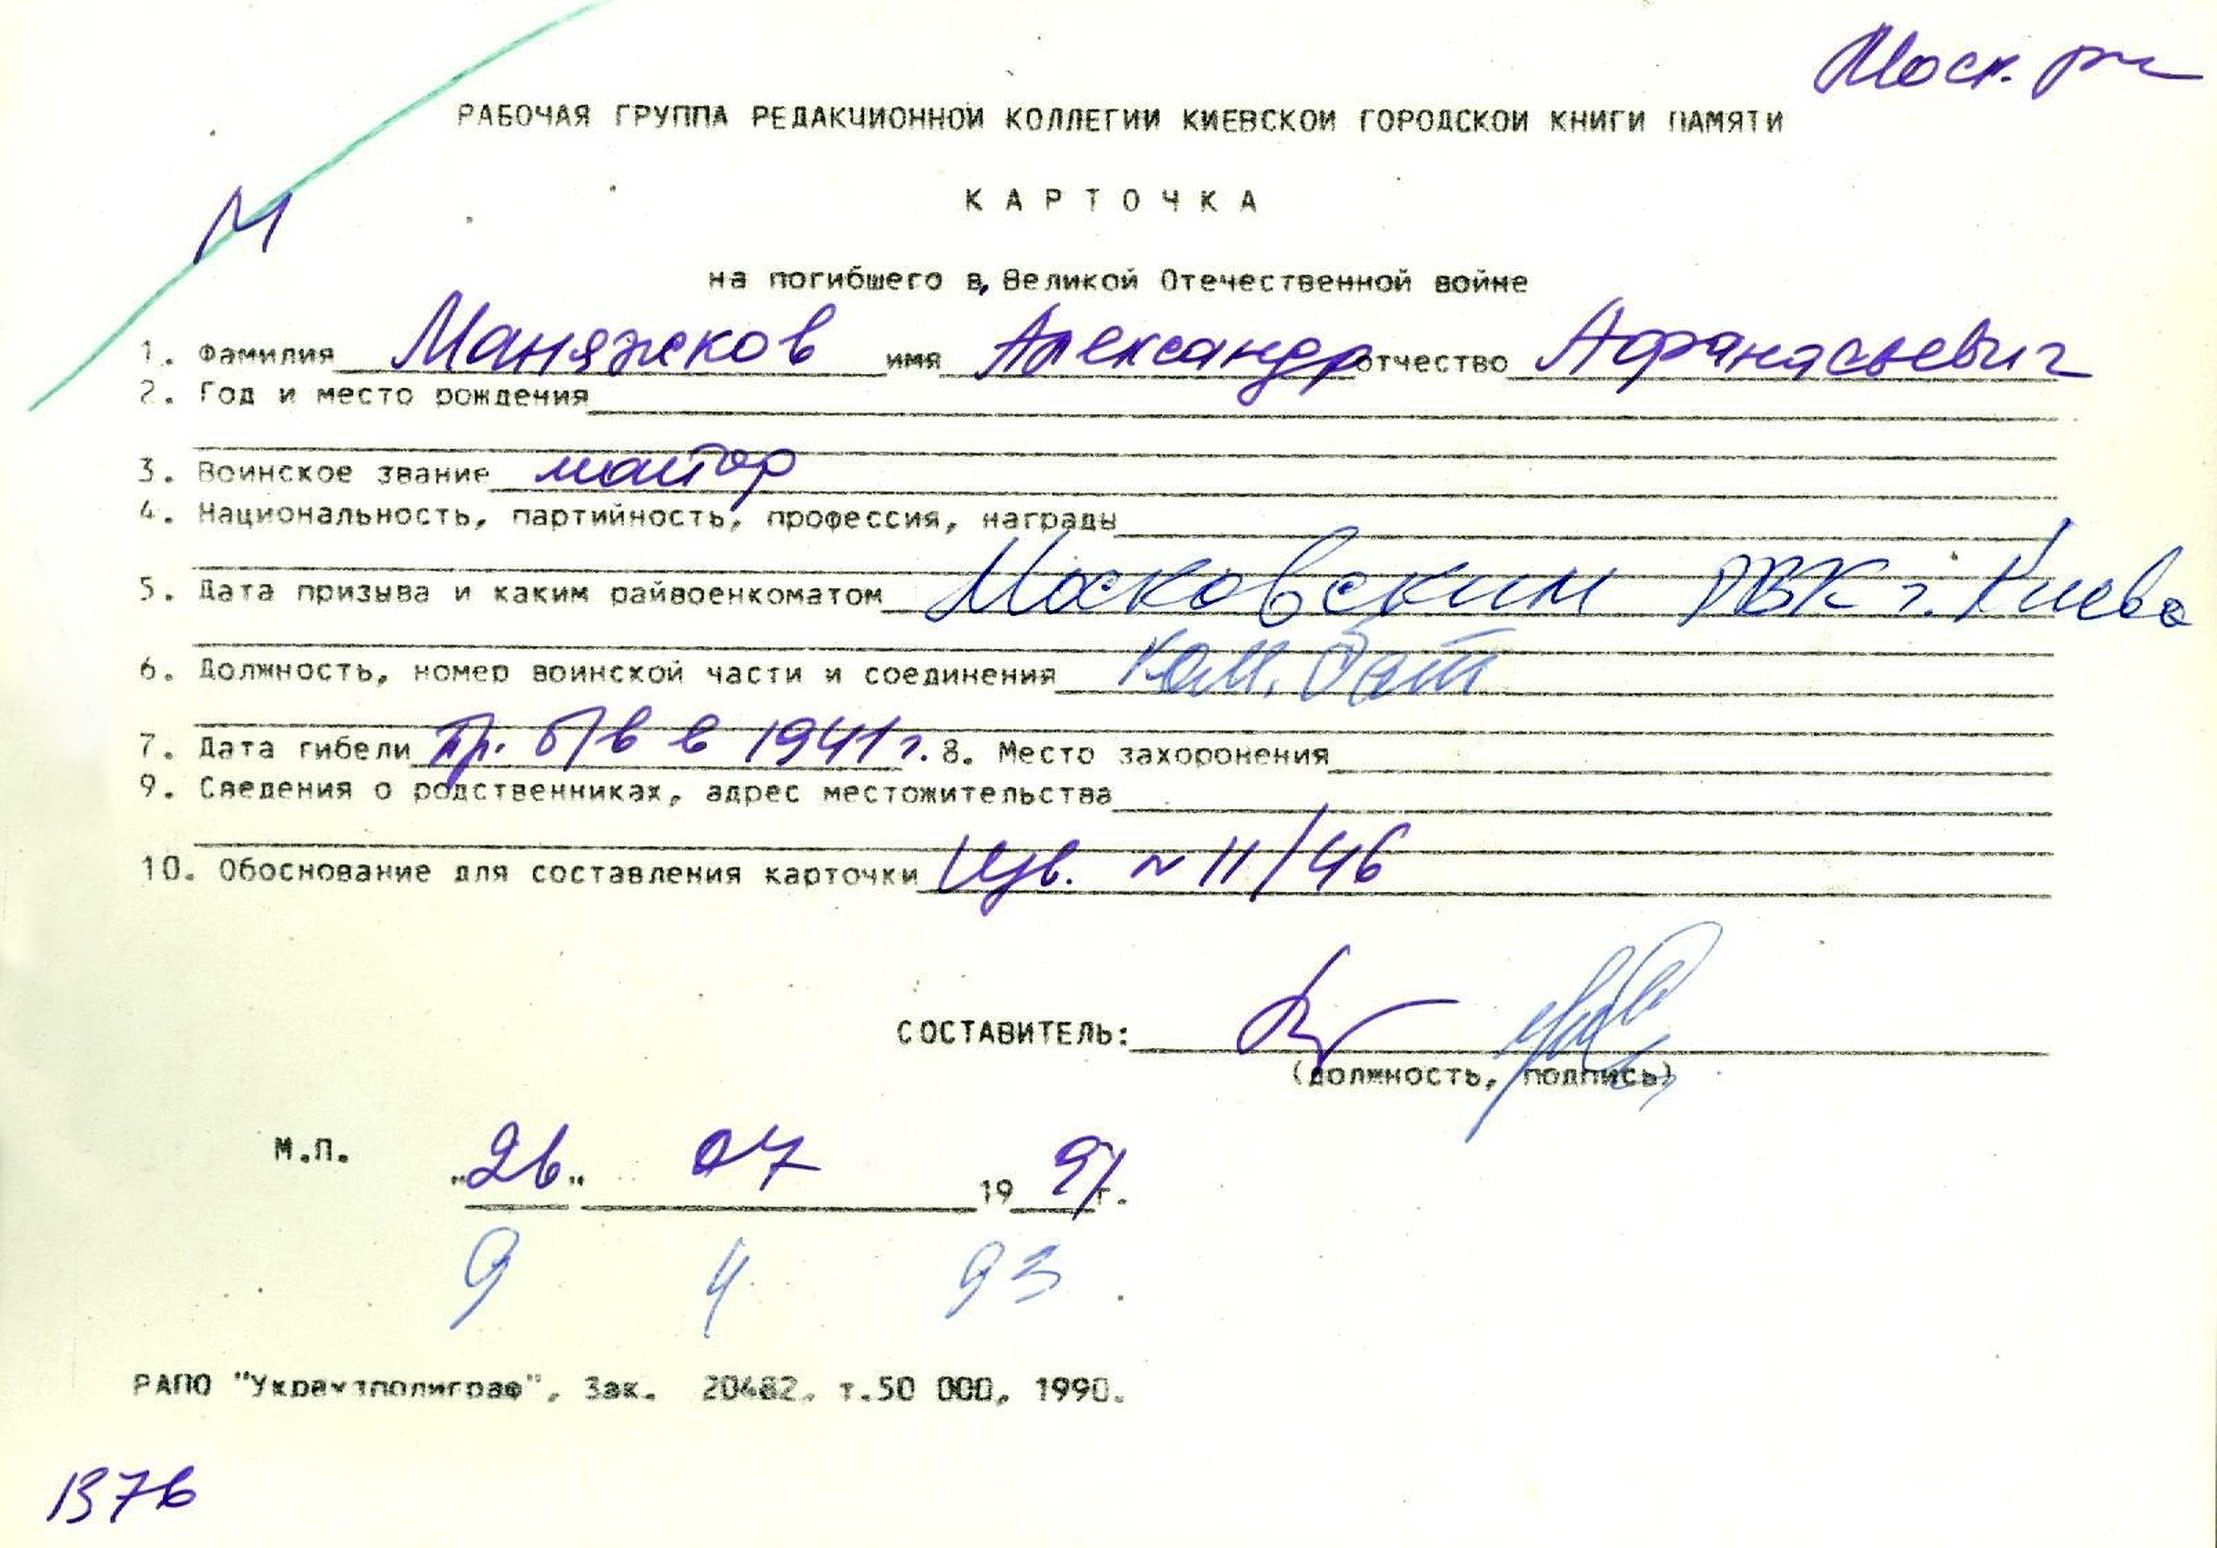 Моск. р-н
РАБОЧАЯ ГРУППА РЕДАКЦИОННОЙ КОЛЛЕГИИ КИЕВСКОЙ ГОРОДСКОЙ КНИГИ ПАМЯТИ
КАРТОЧКА
М
на погибшего в Великой Отечественной войне
1. Фамилия Маняжков имя Александр отчество Афанасьевич
2. Год и место рождения
3. Воинское звание майор
4. Национальность, партийность, профессия, награды
5. Дата призыва и каким райвоенкоматом Московским РВК г. Киева
6. Должность, номер воинской части и соединения ком. бат
7. Дата гибели пр. б/в в 1941 г. 8. Место захоронения
9. Сведения о родственниках, адрес местожительства
10. Обоснование для составления карточки Изв. № 11/46
СОСТАВИТЕЛЬ:
(должность, подпись)
М.П.
"26" 07 1991 г.
9 4 93
РАПО "Укрвузполиграф", Зак. 20482, т.50 000, 1990.
1376